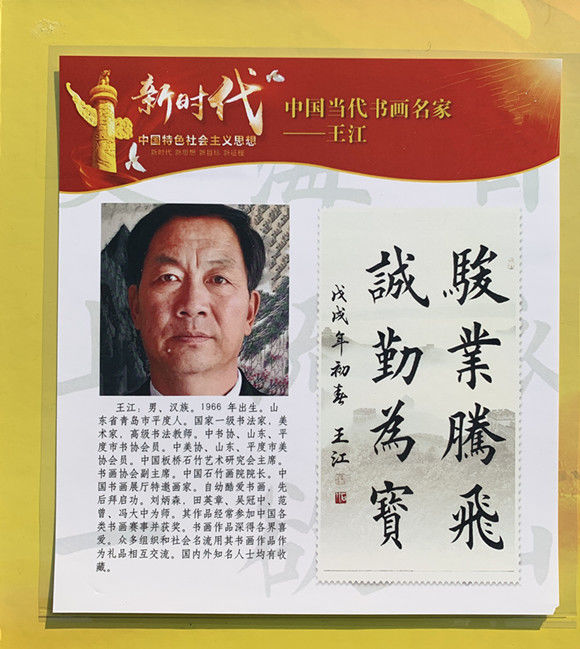 新时代
中国特色社会主义思想
新时代 新思想 新目标 新征程
中国当代书画名家
——王江
王江：男、汉族。1966 年出生。山
东省青岛市平度人。国家一级书法家，美
术家，高级书法教师。中书协、山东、平
度市书协会员。中美协、山东、平度市美
协会员。中国板桥石竹艺术研究会主席。
书画协会副主席。中国石竹画院院长。中
国书画展厅特邀画家。自动酷爱书画，先
后拜启功。刘炳森、田英章、吴冠中、范
曾、冯大中为师。其作品经常参加中国各
类书画赛事并获奖。书画作品深得各界喜
爱。众多组织和社会名流用其书画作品作
为礼品相互交流。国内外知名人士均有收
藏。
駿業騰飛
誠勤為寶
戊戌年初春 王江